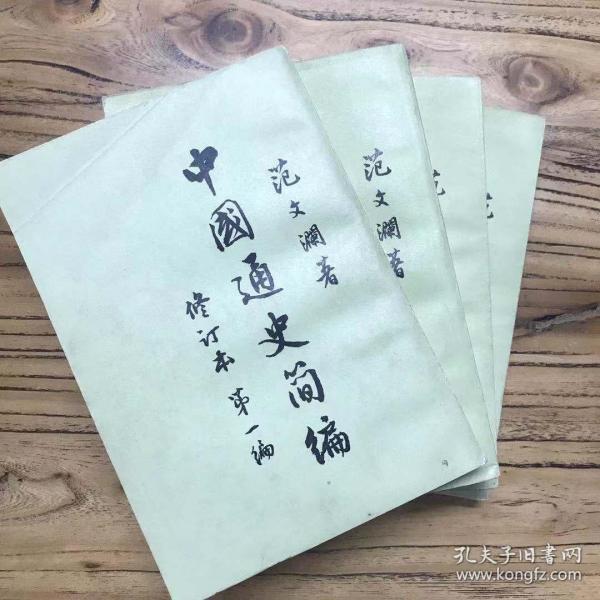 范文瀾著
中國通史简编
修订本 第一编
范文瀾著
范
范
孔夫子旧書网
www.kongfz.com